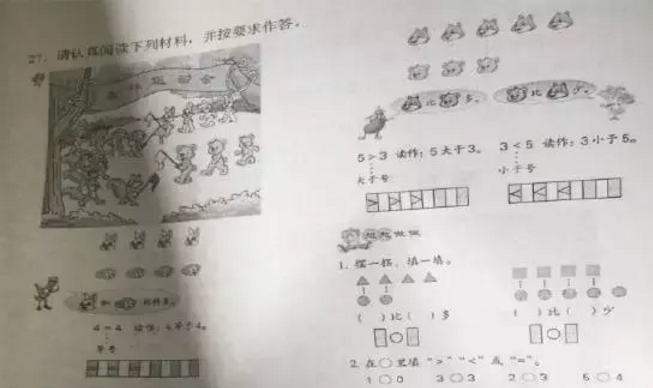 27. 请认真阅读下列材料，并按要求作答。
森林运动会
和 同样多。
4=4 读作：4等于4。
等号
比 多。
比 少。
5>3 读作：5大于3。
大于号
3<5 读作：3小于5。
小于号
想想做做
1. 摆一摆，填一填。
( )比( )多
( )比( )少
2. 在○里填“>”“<”或“=”。
1○0 3○3 2○3 5○4